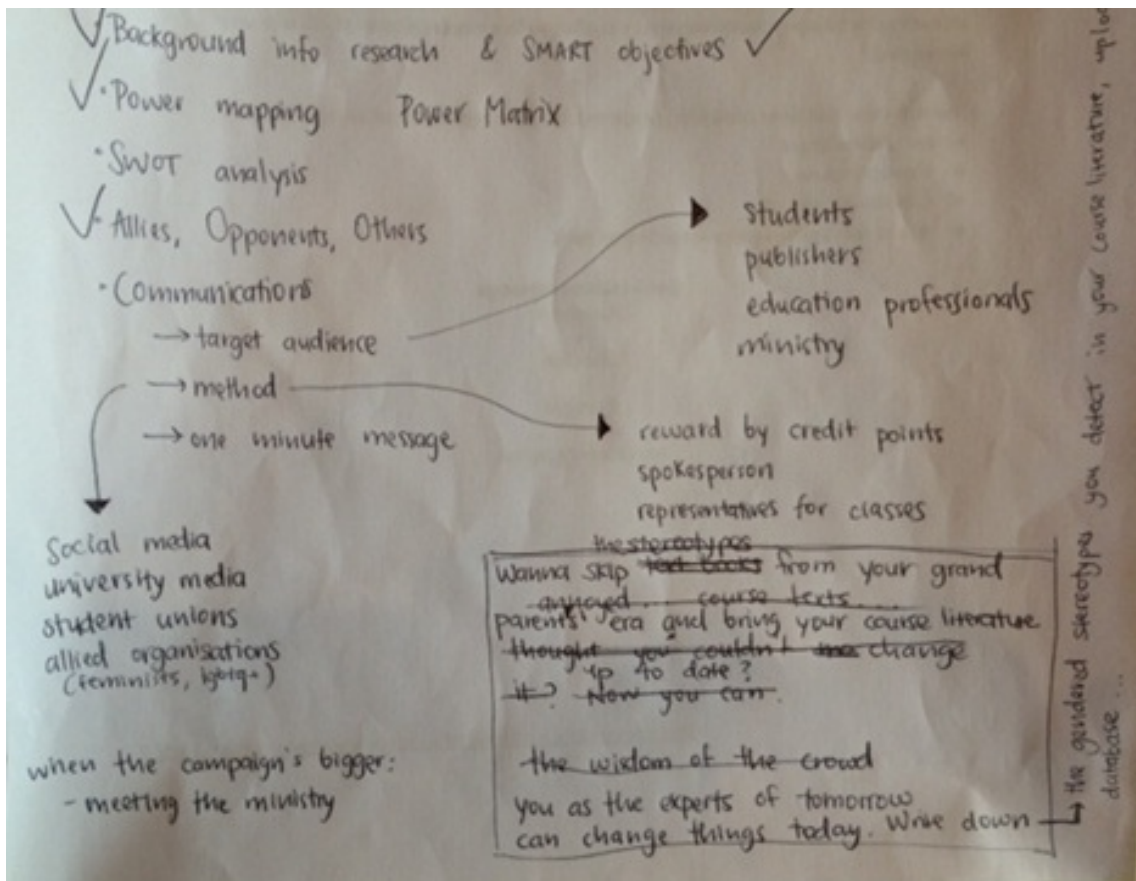 Background info research & SMART objectives
• Power mapping Power Matrix
• SWOT analysis
• Allies, Opponents, Others
• Communications
→ target audience
students
publishers
education professionals
ministry
→ method
reward by credit points
spokesperson
representatives for classes
→ one minute message
Social media
university media
student unions
allied organisations
(feminists, lgbtq+)
when the campaign's bigger:
- meeting the ministry
the stereotypes
Wanna skip text books from your grand
annoyed... course texts...
parents' era and bring your course literature
thought you couldn't change
up to date?
it? Now you can.
the wisdom of the crowd
you as the experts of tomorrow
can change things today. Write down
→ the gendered stereotypes you detect in your course literature,
database...